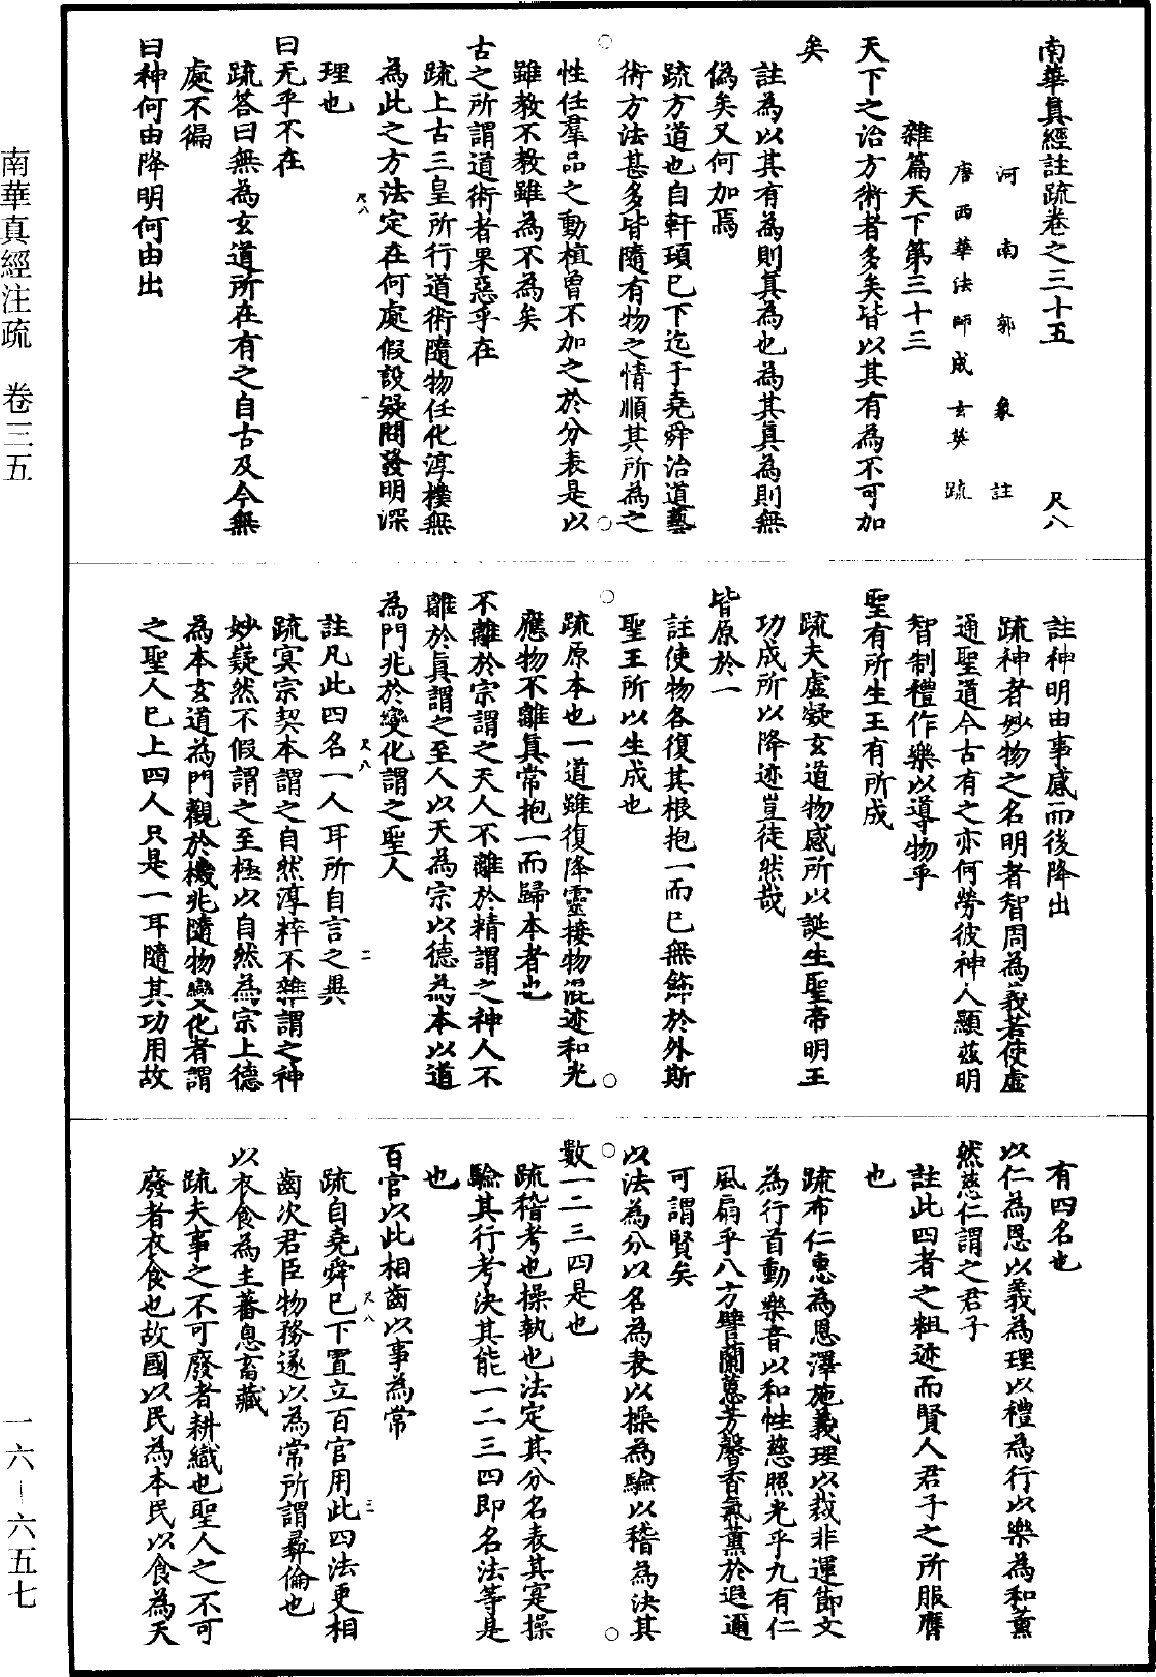 南華真經註疏卷之三十五　尺八
河南郭象註
唐西華法師成玄英疏
雜篇天下第三十三
天下之治方術者多矣皆以其有為不可加
矣
註為以其有為則真為也為其真為則無
偽矣又何加焉
疏方道也自軒頊已下迄于堯舜治道藝
術方法甚多皆隨有物之情順其所為之
性任羣品之動植曾不加之於分表是以
雖教不教雖為不為矣
古之所謂道術者果惡乎在
疏上古三皇所行道術隨物任化淳樸無
為此之方法定在何處假設疑問發明深
理也
尺八　一
曰无乎不在
疏答曰無為玄道所在有之自古及今無
處不徧
曰神何由降明何由出
註神明由事感而後降出
疏神者妙物之名明者智周為義若使虛
通聖道今古有之亦何勞彼神人顯茲明
智制禮作樂以導物乎
聖有所生王有所成
疏夫虛凝玄道物感所以誕生聖帝明王
功成所以降迹豈徒然哉
皆原於一
註使物各復其根抱一而已無飾於外斯
聖王所以生成也
疏原本也一道雖復降靈接物混迹和光
應物不離真常抱一而歸本者也
不離於宗謂之天人不離於精謂之神人不
離於真謂之至人以天為宗以德為本以道
為門兆於變化謂之聖人
尺八　二
註凡此四名一人耳所自言之異
疏冥宗契本謂之自然淳粹不雜謂之神
妙嶷然不假謂之至極以自然為宗上德
為本玄道為門觀於機兆隨物變化者謂
之聖人已上四人只是一耳隨其功用故
有四名也
以仁為恩以義為理以禮為行以樂為和薰
然慈仁謂之君子
註此四者之粗迹而賢人君子之所服膺
也
疏布仁惠為恩澤施義理以裁非運節文
為行首動樂音以和性慈照光乎九有仁
風扇乎八方譬蘭蕙芳馨香氣薰於遐邇
可謂賢矣
以法為分以名為表以操為驗以稽為決其
數一二三四是也
疏稽考也操執也法定其分名表其寔操
驗其行考決其能一二三四即名法等是
也
百官以此相齒以事為常
尺八　三
疏自堯舜已下置立百官用此四法更相
齒次君臣物務遂以為常所謂彝倫也
以衣食為主蕃息畜藏
疏夫事之不可廢者耕織也聖人之不可
廢者衣食也故國以民為本民以食為天
南華真經注疏　卷三五
一六—六五七